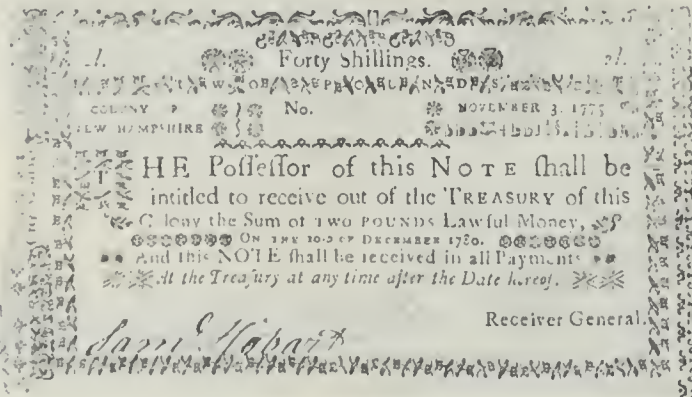 Forty Shillings.
COLONY
No.
NOVEMBER 3. 1775
NEW HAMPSHIRE
THE Poſſeſſor of this NOTE ſhall be
intitled to receive out of the TREASURY of this
Colony the Sum of TWO POUNDS Lawful Money,
ON THE 10.D OF DECEMBER 1780.
And this NOTE ſhall be received in all Payments
At the Treaſury at any time after the Date hereof.
Receiver General.
Sam.l Hobart